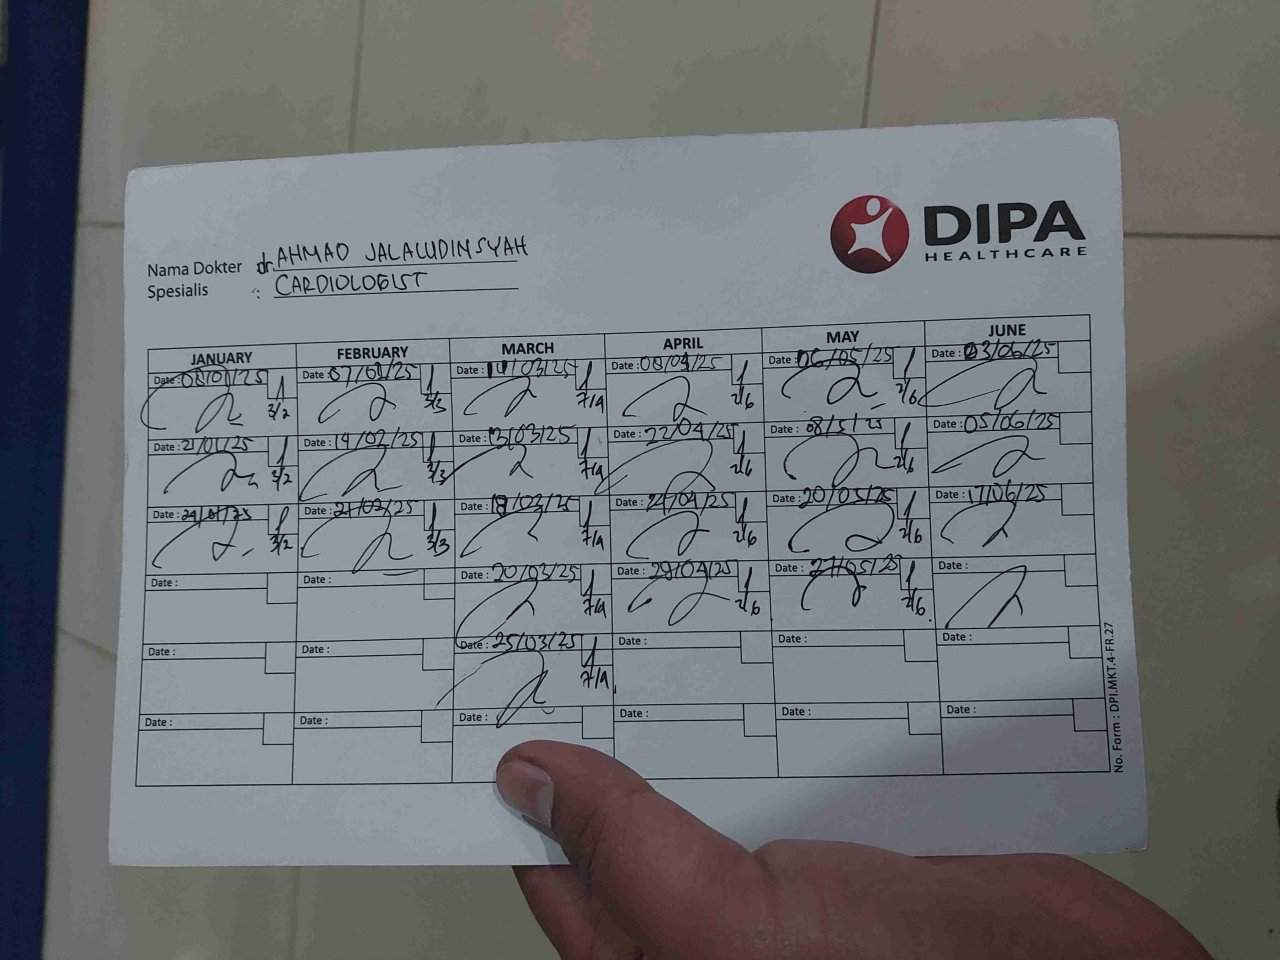 DIPA
HEALTHCARE
Nama Dokter dr. AHMAD JALALUDINSYAH
Spesialis : CARDIOLOGIST
JANUARY FEBRUARY MARCH APRIL MAY JUNE
Date : 08/01/25 Date : 07/02/25 Date : 11/03/25 Date : 08/04/25 Date : 06/05/25 Date : 03/06/25
3/2 3/3 7/4 2/6 2/6
Date : 21/01/25 Date : 14/02/25 Date : 13/03/25 Date : 22/04/25 Date : 08/5/25 Date : 05/06/25
3/2 3/3 7/4 2/6 2/6
Date : Date : 21/02/25 Date : 18/03/25 Date : 24/04/25 Date : 20/05/25 Date : 17/06/25
3/2 3/3 7/4 2/6 2/6
Date : Date : Date : 20/03/25 Date : 29/04/25 Date : 27/05/25 Date :
7/4 2/6 2/6
Date : Date : Date : 25/03/25 Date : Date : Date :
7/4
Date : Date : Date : Date : Date : Date :
No. Form : DPI.MKT.4-FR.27